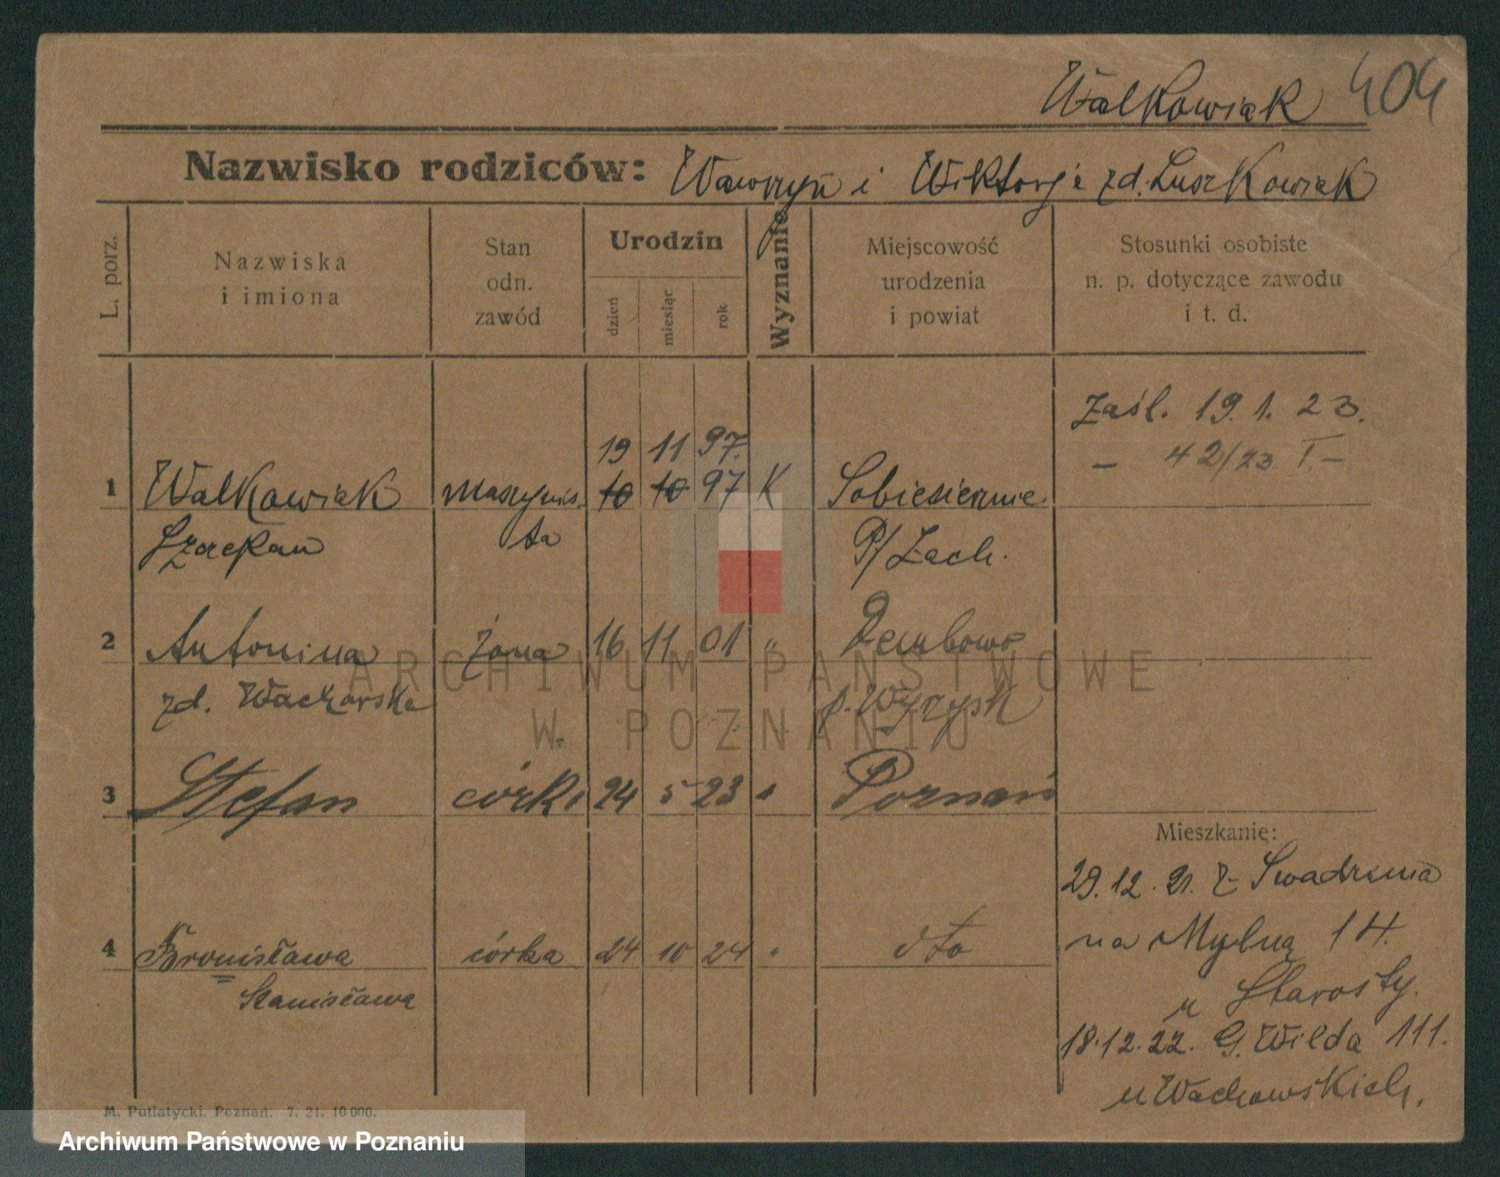 Walkowiak 404
Nazwisko rodziców: Wawrzyn i Wiktorja zd. Luszkowiak
L. porz.
Nazwiska i imiona
Stan odn. zawód
Urodzin
dzień
miesiąc
rok
Wyznanie
Miejscowość urodzenia i powiat
Stosunki osobiste n. p. dotyczące zawodu i t. d.
Zaśl. 19. 1. 23.
– 42/23 I –
19 11 97.
1 Walkowiak maszynis. 10 10 97 K Sobiesiernie
Szczepan ta P/Zach.
2 Antonina żona 16 11 01 „ Dembowo
zd. Wachowska p. Wyrzysk
3 Stefan córka 24 5 23 Poznań
Mieszkanie:
29. 12. 21. Z Swadzenia
na Mylną 14.
u Starosty.
4 Bronisława córka 24 10 24 dto
Stanisława
18.12.22. G. Wilda 111.
u Wachowskich.
M. Putiatycki. Poznań. 7. 21. 10 000.
ARCHIWUM PAŃSTWOWE
W POZNANIU
Archiwum Państwowe w Poznaniu